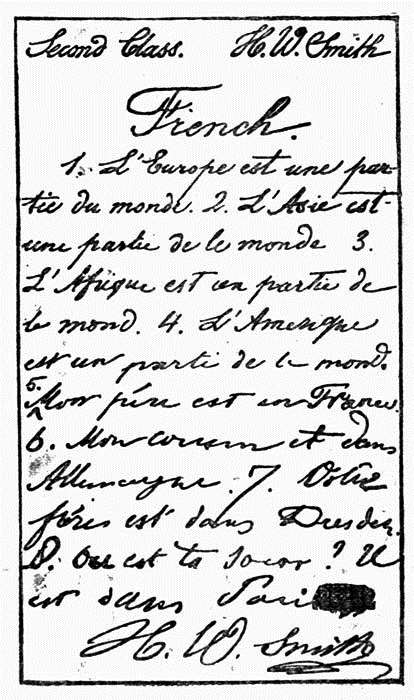 Second Class. H. W. Smith
French.
1. L'Europe est une par-
tie du monde. 2. L'Asie est
une partie de le monde 3.
L'Afrique est un partie de
le mond. 4. L'Amerique
est un parti de le mond.
5.
Mon pére est en France.
6. Mon cousin et dans
Allemagne. 7. Votre
féres est dans Dresden.
8. Ou est ta soeor? Il
est dans Pari
H. W. Smith